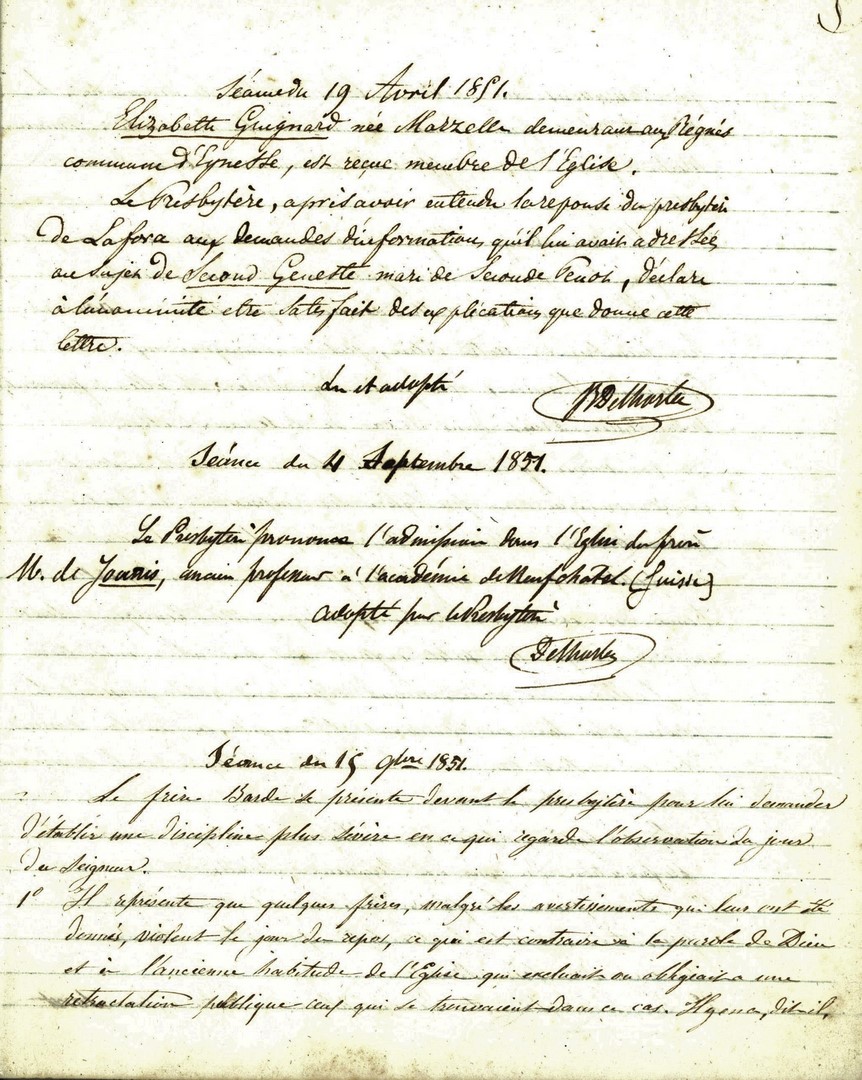 5
Séance du 19 Avril 1851.
Elizabeth Guignard née Marzelle demeurant aux Régnés
commune d'Eynesse, est reçue membre de l'Eglise.
Le Presbytère, après avoir entendu la réponse du presbytère
de Laforce aux demandes d'informations qu'il lui avait adressées
au sujet de Second Geneste mari de Seconde Penot, déclare
à l'unanimité etre satisfait des explications que donne cette
lettre.
Lu et adopté
Delhorbe
Séance du 4 Septembre 1851.
Le Presbytère prononce l'admission dans l'Eglise du frère
M. de Jounis, ancien professeur à l'académie de Neufchatel. (Suisse)
adopté par le Presbytère
Delhorbe
Séance du 15 9bre 1851.
Le frère Barde se présente devant le presbytère pour lui demander
d'établir une discipline plus sévère en ce qui regarde l'observation du jour
du Seigneur.
1° Il représente que quelques frères, malgré les avertissements qui leur ont été
donnés, violent le jour du repos, ce qui est contraire à la parole de Dieu
et à l'ancienne habitude de l'Eglise qui excluait ou obligeait a une
rétractation publique ceux qui se trouvaient dans ce cas. Il y en a, dit-il,